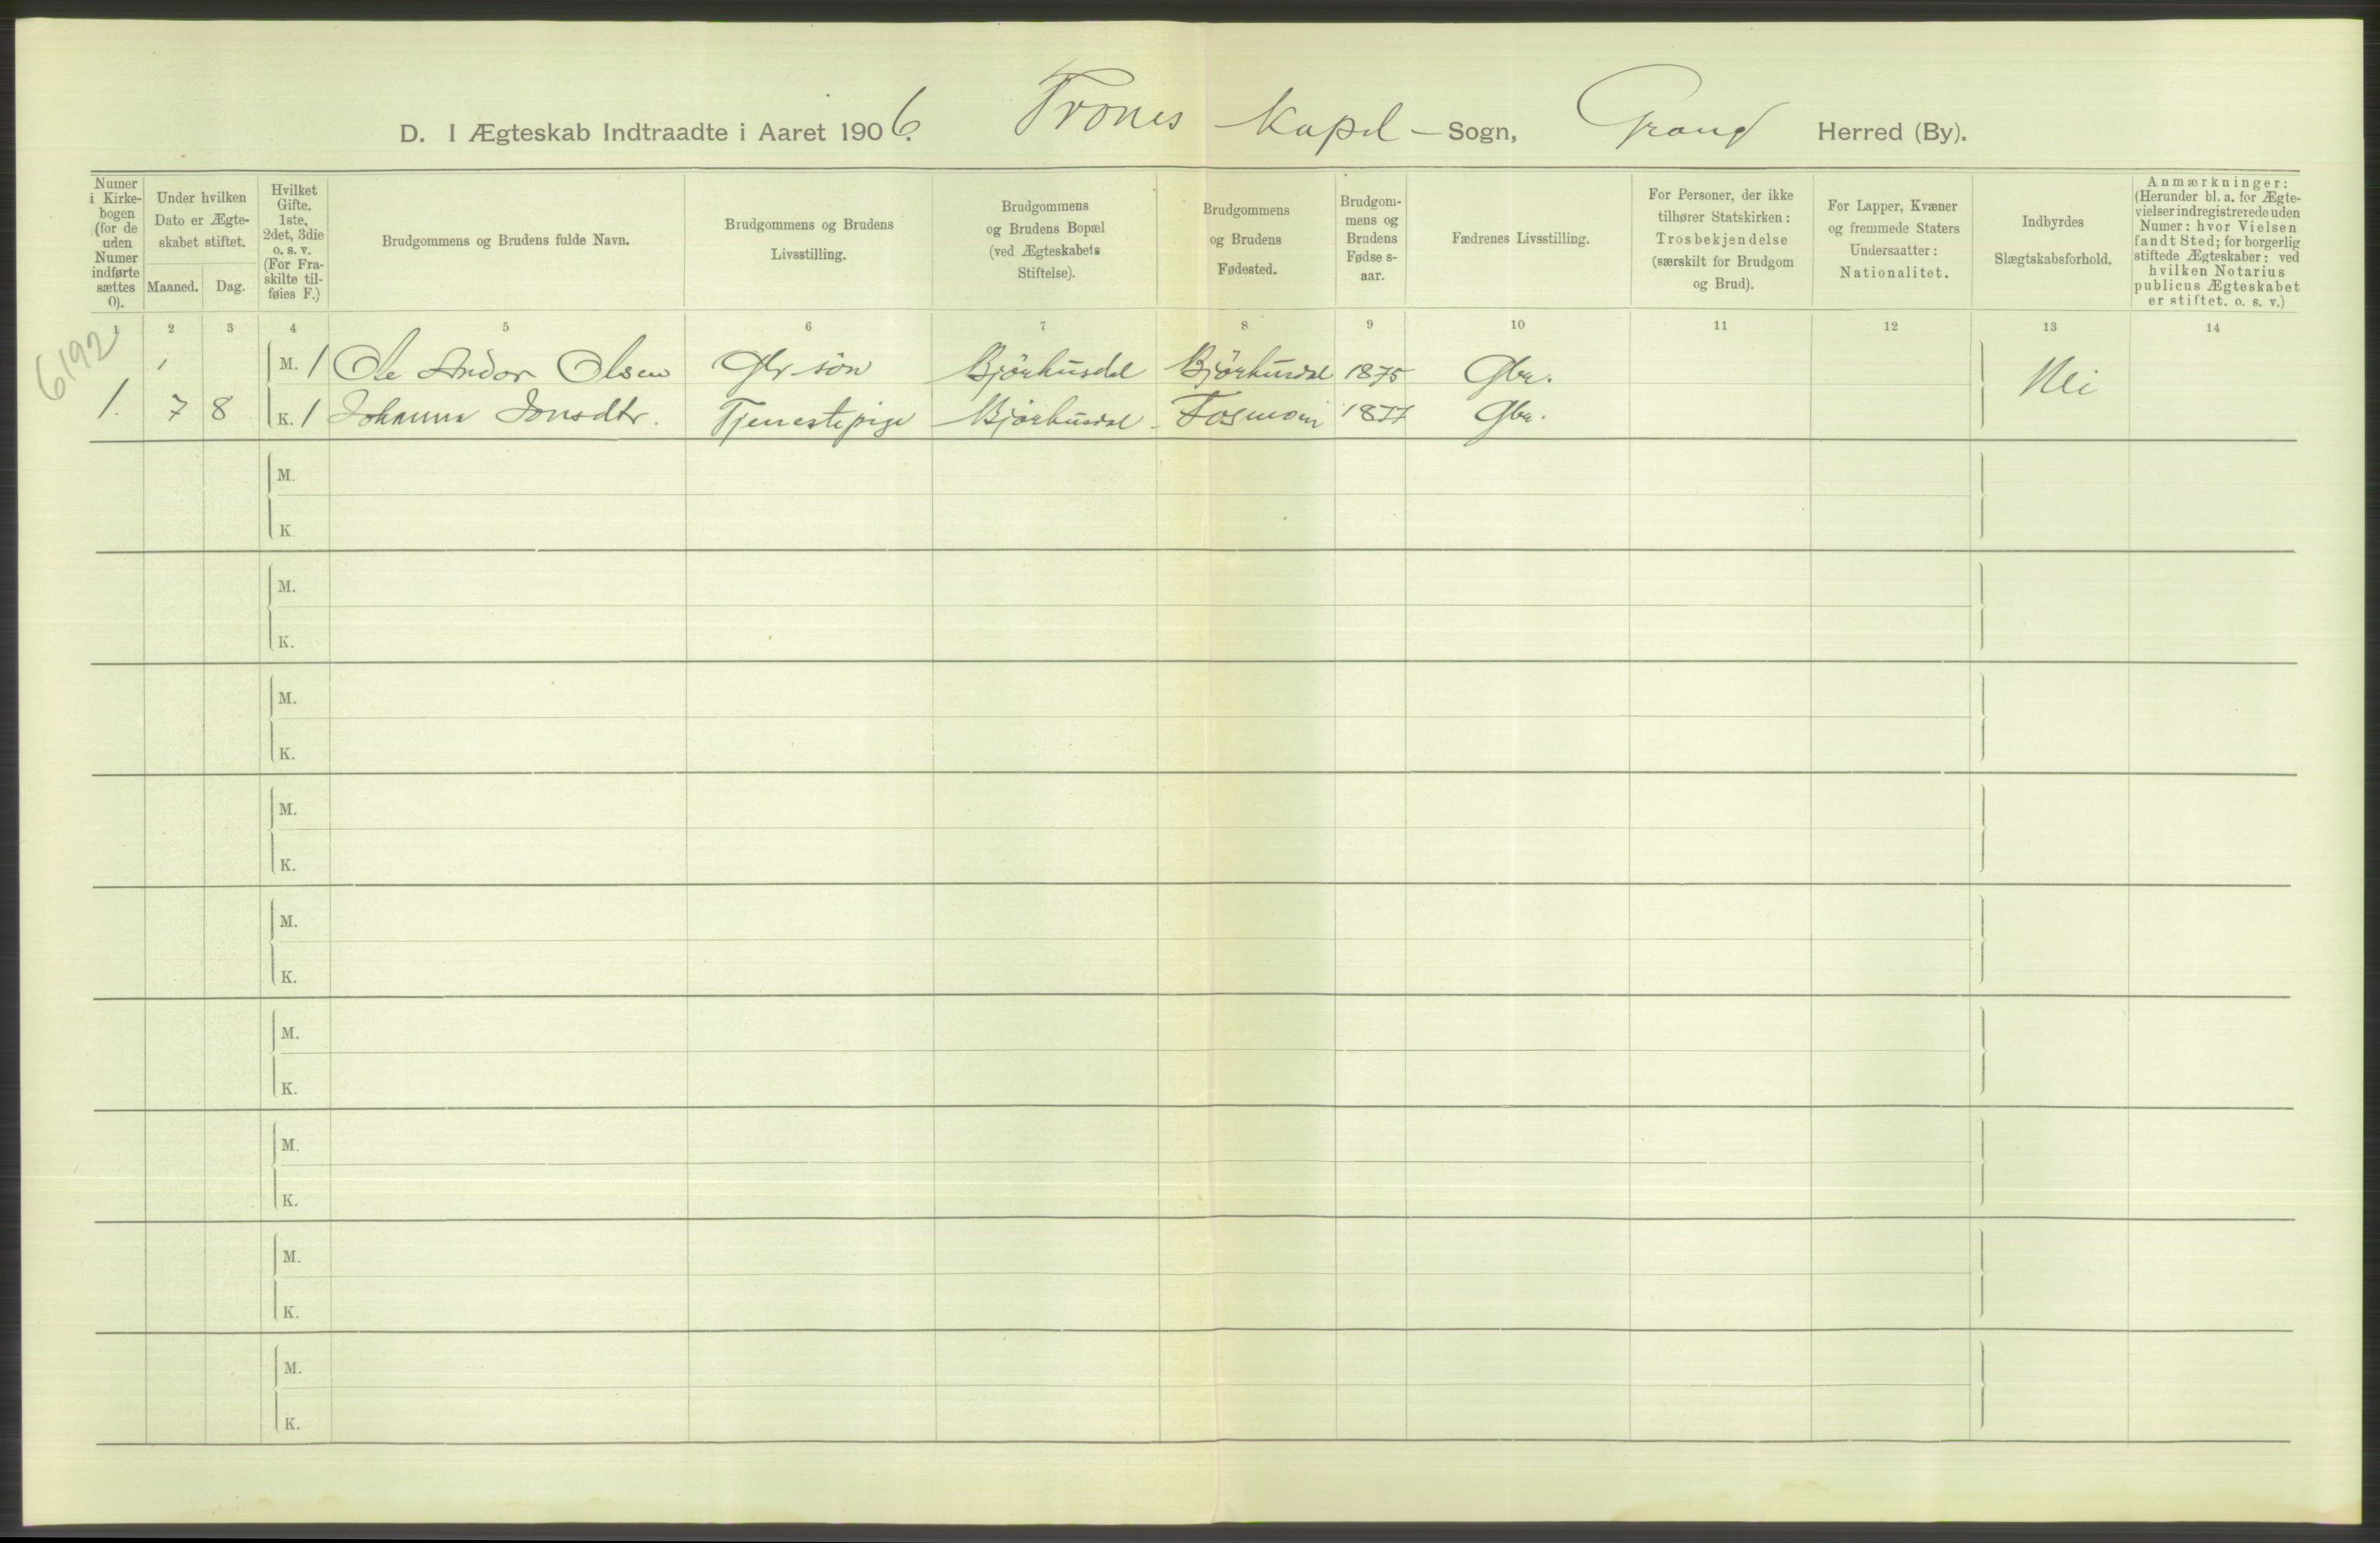 D. I Ægteskab Indtraadte i Aaret 1906. Trones Kapel - Sogn, Grong Herred (By).
Numer i Kirke-bogen (for de uden Numer indførte sættes 0).
Under hvilken Dato er Ægte-skabet stiftet.
Maaned. Dag.
Hvilket Gifte. 1ste, 2det, 3die o. s. v. (For Fra-skilte til-føies F.)
Brudgommens og Brudens fulde Navn.
Brudgommens og Brudens Livsstilling.
Brudgommens og Brudens Bopæl (ved Ægteskabets Stiftelse).
Brudgommens og Brudens Fødested.
Brudgom-mens og Brudens Fødse s-aar.
Fædrenes Livsstilling.
For Personer, der ikke tilhører Statskirken: Trosbekjendelse (særskilt for Brudgom og Brud).
For Lapper, Kvæner og fremmede Staters Undersaatter: Nationalitet.
Indbyrdes Slægtskabsforhold.
Anmærkninger: (Herunder bl. a. for Ægte-vielser indregistrerede uden Numer: hvor Vielsen fandt Sted; for borgerlig stiftede Ægteskaber: ved hvilken Notarius publicus Ægteskabet er stiftet. o. s. v.)
1 2 3 4 5 6 7 8 9 10 11 12 13 14
6192
M. 1 Ole Andor Olsen Gbr søn Bjørhusdal Bjørhusdal 1875 Gbr. Nei
1. 7 8 K. 1 Johanna Jonsdtr. Tjenestepige Bjørhusdal Fosmoen 1877 Gbr.
M.
K.
M.
K.
M.
K.
M.
K.
M.
K.
M.
K.
M.
K.
M.
K.
M.
K.